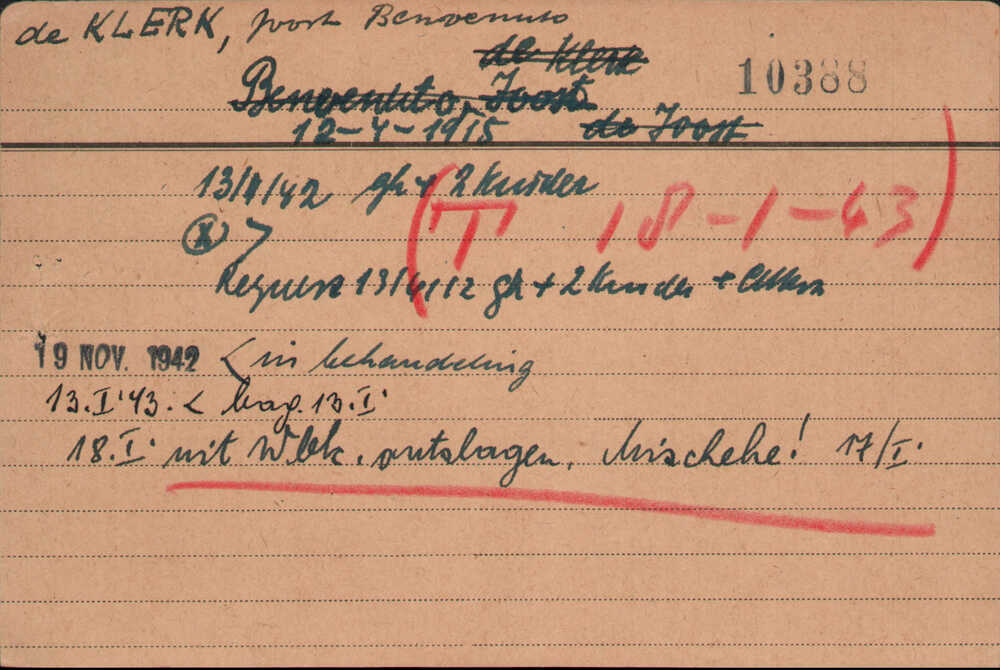 de KLERK, Joost Benvenuto
de Klerk
10388
Benvenuto, Joost
12-4-1915 de Joost
13/11/42 gh + 2 Kinder
(T 18-1-43)
X >
Request 13/11/42 gh + 2 Kinder +
19 NOV. 1942 < in behandeling
13.I '43. < bag. 13.I.
18.I. uit Wbk. ontslagen. Mischehe! 17/I.